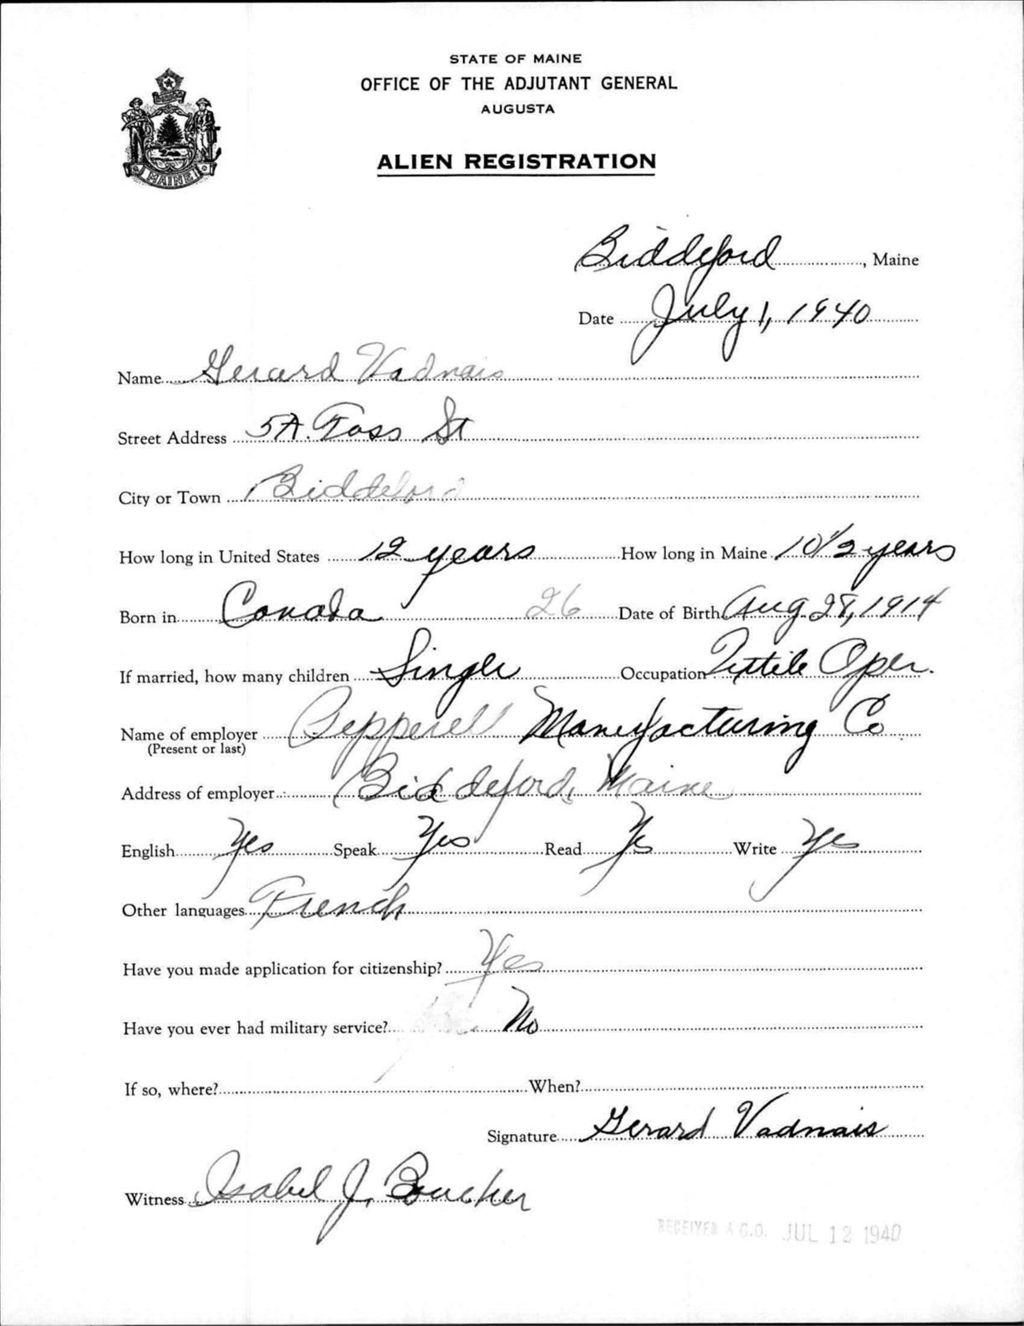 STATE OF MAINE
OFFICE OF THE ADJUTANT GENERAL
AUGUSTA
ALIEN REGISTRATION
MAINE
Biddeford, Maine
Date July 1, 1940
Name Gerard Vadnais
Street Address 5A. Foss St
City or Town Biddeford
How long in United States 12 years How long in Maine 10 1/2 years
Born in Canada 26 Date of Birth Aug 28, 1914
If married, how many children Single Occupation Textile Oper.
Name of employer Pepperell Manufacturing Co.
(Present or last)
Address of employer Biddeford, Maine
English Yes Speak Yes Read Yes Write Yes
Other languages French
Have you made application for citizenship? Yes
Have you ever had military service? No
If so, where? When?
Signature Gerard Vadnais
Witness Isabel J. Boucher
RECEIVED A.G.O. JUL 12 1940